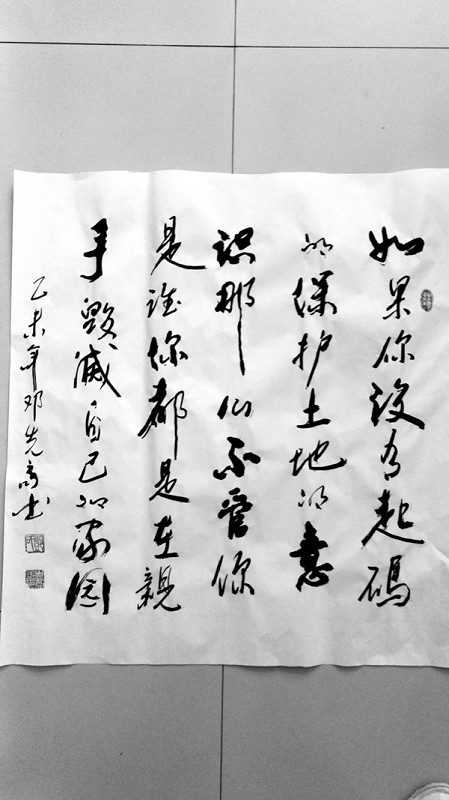 如果你没有起码
的保护土地的意
识那么不管你
是谁你都是在親
手毁滅自己的家園
乙未年邓先高书